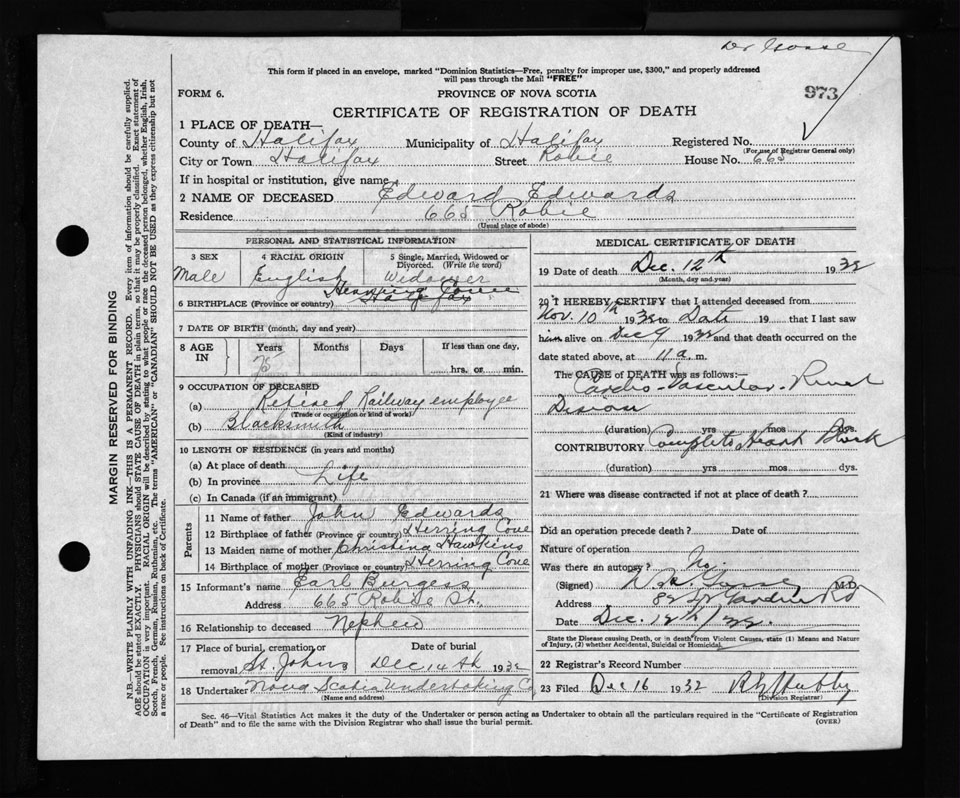 Dr Gosse
This form if placed in an envelope, marked "Dominion Statistics—Free, penalty for improper use, $300," and properly addressed
will pass through the Mail "FREE"
FORM 6. PROVINCE OF NOVA SCOTIA 973
CERTIFICATE OF REGISTRATION OF DEATH
1 PLACE OF DEATH—
County of Halifax Municipality of Halifax Registered No.
(For use of Registrar General only)
City or Town Halifax Street Robie House No. 665
If in hospital or institution, give name
2 NAME OF DECEASED Edward Edwards
Residence 665 Robie
(Usual place of abode)
PERSONAL AND STATISTICAL INFORMATION
3 SEX 4 RACIAL ORIGIN 5 Single, Married, Widowed or Divorced. (Write the word)
Male English Widower
Herring Cove
6 BIRTHPLACE (Province or country) Halifax
7 DATE OF BIRTH (month, day and year)
8 AGE IN Years Months Days If less than one day,
75 hrs. or min.
9 OCCUPATION OF DECEASED
(a) Retired Railway employee
(Trade or occupation or kind of work)
(b) Blacksmith
(Kind of industry)
10 LENGTH OF RESIDENCE (in years and months)
(a) At place of death
(b) In province Life
(c) In Canada (if an immigrant)
Parents
11 Name of father John Edwards
12 Birthplace of father (Province or country) Herring Cove
13 Maiden name of mother Christina Hawkins
14 Birthplace of mother (Province or country) Herring Cove
15 Informant's name Earl Burgess
Address 665 Robie St.
16 Relationship to deceased Nephew
17 Place of burial, cremation or Date of burial
removal St. Johns Dec 14th 1932
18 Undertaker Nova Scotia Undertaking Co
(Name and address)
MEDICAL CERTIFICATE OF DEATH
19 Date of death Dec. 12th 1932
(Month, day and year)
20 I HEREBY CERTIFY that I attended deceased from
Nov. 10th 1932 to Date 19 that I last saw
him alive on Dec 9 1932 and that death occurred on the
date stated above, at 11 a. m.
The CAUSE of DEATH was as follows:—
Cardio-Vascular-Renal
Disease
(duration) yrs mos dys.
CONTRIBUTORY Complete Heart Block
(duration) yrs mos dys.
21 Where was disease contracted if not at place of death?
Did an operation precede death? Date of
Nature of operation
Was there an autopsy? No.
(Signed) Gosse M.D.
Address Rd
Date Dec. 12th/32.
State the Disease causing Death, or in death from Violent Causes, state (1) Means and Nature
of Injury, (2) whether Accidental, Suicidal or Homicidal.
22 Registrar's Record Number
23 Filed Dec 16 1932
(Division Registrar)
Sec. 46—Vital Statistics Act makes it the duty of the Undertaker or person acting as Undertaker to obtain all the particulars required in the "Certificate of Registration
of Death" and to file the same with the Division Registrar who shall issue the burial permit. (OVER)
MARGIN RESERVED FOR BINDING
N.B.—WRITE PLAINLY WITH UNFADING INK—THIS IS A PERMANENT RECORD. Every item of information should be carefully supplied.
AGE should be stated EXACTLY. PHYSICIANS should STATE CAUSE OF DEATH in plain terms, so that it may be properly classified. Exact statement of
OCCUPATION is very important. RACIAL ORIGIN will be described by stating to what people or race the deceased person belonged, whether English, Irish,
Scotch, French, German, Russian, Ruthenian, etc. The terms "AMERICAN" or "CANADIAN" SHOULD NOT BE USED as they express citizenship but not
a race or people. See instructions on back of Certificate.